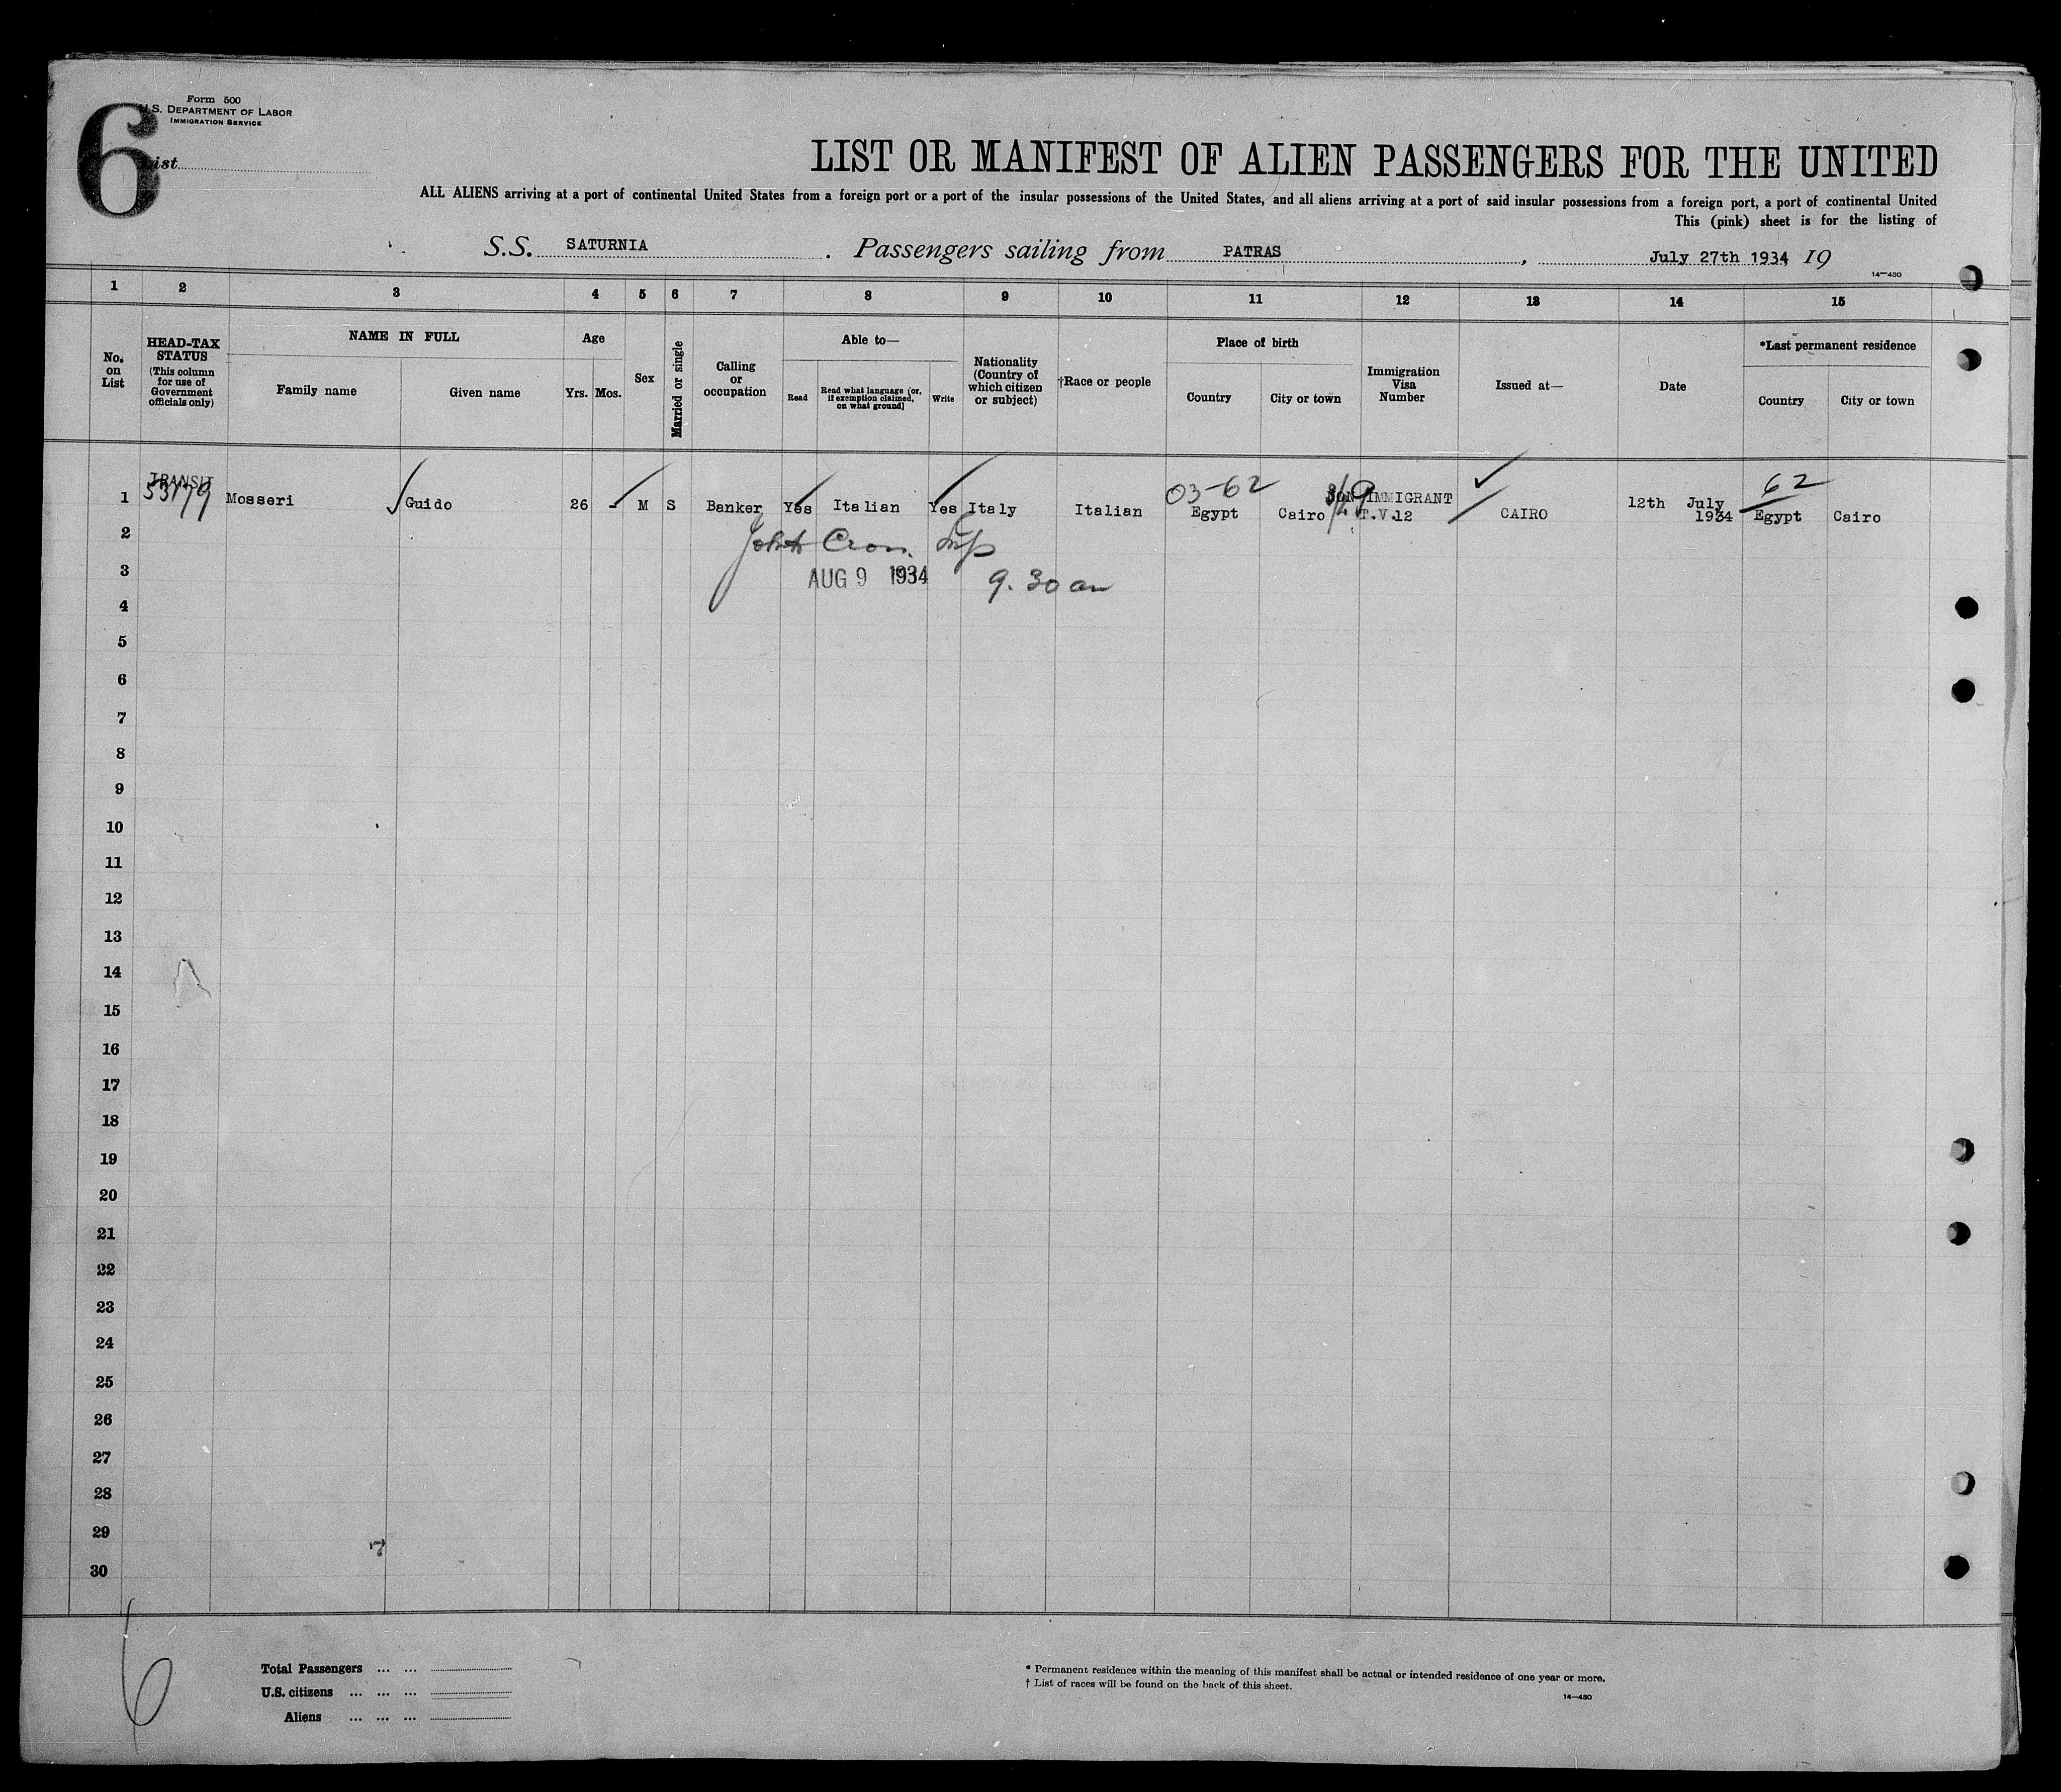 Form 500
U.S. DEPARTMENT OF LABOR
IMMIGRATION SERVICE
6
List
LIST OR MANIFEST OF ALIEN PASSENGERS FOR THE UNITED
ALL ALIENS arriving at a port of continental United States from a foreign port or a port of the insular possessions of the United States, and all aliens arriving at a port of said insular possessions from a foreign port, a port of continental United
This (pink) sheet is for the listing of
S.S. SATURNIA . Passengers sailing from PATRAS , July 27th 1934 19
14—430
1 2 3 4 5 6 7 8 9 10 11 12 13 14 15
No. on List
HEAD-TAX STATUS (This column for use of Government officials only)
NAME IN FULL
Family name
Given name
Age
Yrs. Mos.
Sex
Married or single
Calling or occupation
Able to—
Read
Read what language [or, if exemption claimed, on what ground]
Write
Nationality (Country of which citizen or subject)
†Race or people
Place of birth
Country
City or town
Immigration Visa Number
Issued at—
Date
*Last permanent residence
Country
City or town
TRANSIT
53179
03-62
62
1 Mosseri Guido 26 - M S Banker Yes Italian Yes Italy Italian Egypt Cairo NON IMMIGRANT T.V.12 CAIRO 12th July 1934 Egypt Cairo
2
3 AUG 9 1934 9.30 am
4
5
6
7
8
9
10
11
12
13
14
15
16
17
18
19
20
21
22
23
24
25
26
27
28
29
7
30
6
Total Passengers ... ...
U.S. citizens ... ... ...
Aliens ... ... ...
* Permanent residence within the meaning of this manifest shall be actual or intended residence of one year or more.
† List of races will be found on the back of this sheet.
14—430